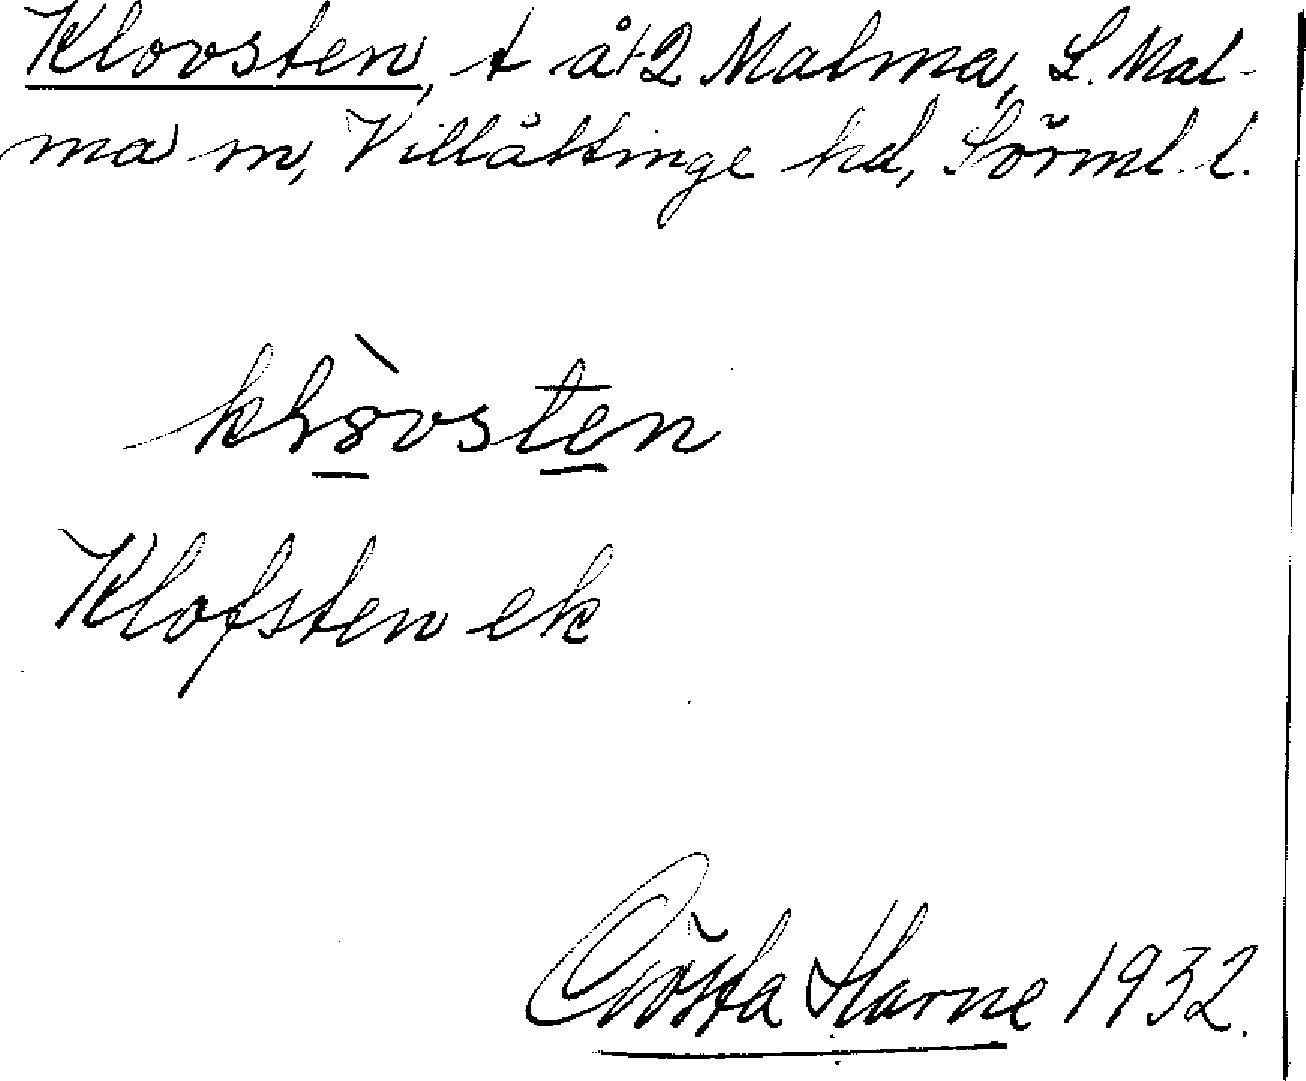 Klovsten, t å 1-2 Malma, L. Mal-
ma sn, Villåttinge hd, Sörml. l.
Klofsten ek
Gösta Harne 1932.